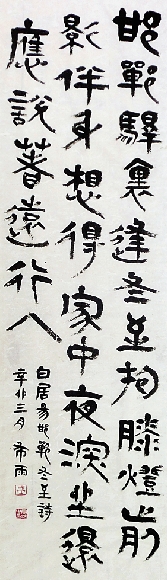 邯鄲驛裏逢冬至抱膝燈前
影伴身想得家中夜深坐還
應說著遠行人
白居易邯鄲冬至詩
辛卯三月希雨